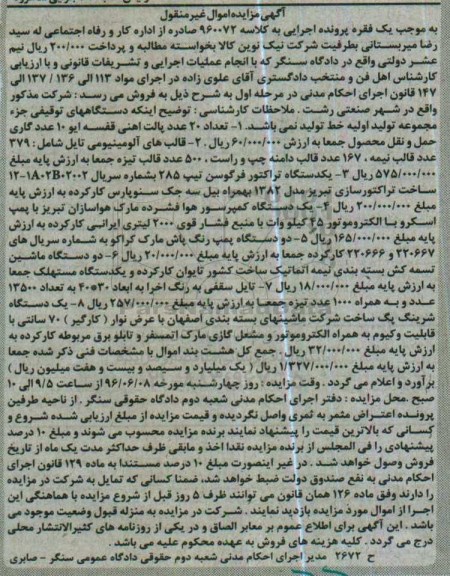 آگهی مزایده اموال غیر منقول
به موجب یک فقره پرونده اجرایی به کلاسه ۹۶۰۰۷۲ صادره از اداره کار و رفاه اجتماعی له سید
رضا میربستانی بطرفیت شرکت نیک نوین کالا بخواسته مطالبه و پرداخت ۲۰۰/۰۰۰ ریال نیم
عشر دولتی واقع در دادگاه سنگر که با انجام عملیات اجرایی و تشریفات قانونی و با ارزیابی
کارشناس اهل فن و منتخب دادگستری آقای علوی زاده در اجرای مواد ۱۱۳ الی ۱۳۶ / ۱۳۷ الی
۱۴۷ قانون اجرای احکام مدنی در مرحله اول به شرح ذیل به فروش می رسد: شرکت مذکور
واقع در شهر صنعتی رشت . ملاحظات کارشناسی : توضیح اینکه دستگاههای توقیفی جزء
مجموعه تولید اولیه خط تولید نمی باشد. ۱- تعداد ۲۰ عدد پالت آهنی قفسه ایو ۱۰ عدد گاری
حمل و نقل محصول جمعا به ارزش ۶۰/۰۰۰/۰۰۰ ریال . ۲- قالب های آلومینیومی تایل شامل : ۳۷۹
عدد قالب نیمه ، ۱۶۷ عدد قالب دامنه چپ و راست ، ۵۰۰ عدد قالب تیزه جمعا به ارزش پایه مبلغ
۵۷۵/۰۰۰/۰۰۰ ریال ۳- یکدستگاه تراکتور فرگوسن تیپ ۲۸۵ بشماره سریال ۱۲-۱۸۰۲B۰۲۰۰۲
ساخت تراکتورسازی تبریز مدل ۱۳۸۲ بهمراه بیل سه جک سنوپارس کارکرده به ارزش پایه
مبلغ ۲۰۰/۰۰۰/۰۰۰ ریال ۴- یک دستگاه کمپرسور هوا فشرده مارک هواسازان تبریز با پمپ
اسکرو با الکتروموتور ۴۵ کیلو وات با منبع فشار قوی ۲۰۰۰ لیتری ایرانی کارکرده به ارزش
پایه مبلغ ۱۶۵/۰۰۰/۰۰۰ ریال ۵- دو دستگاه پمپ رنگ پاش مارک کراکو به شماره سریال های
۲۲۰۶۶۷ و ۲۲۰۶۶۶ کارکرده جمعا به ارزش پایه مبلغ ۲۰/۰۰۰/۰۰۰ ریال ۶- دو دستگاه ماشین
تسمه کش بسته بندی نیمه اتماتیک ساخت کشور تایوان کارکرده و یکدستگاه مستهلک جمعا
به ارزش پایه مبلغ ۱۸/۰۰۰/۰۰۰ ریال ۷- تایل سقفی به رنگ اخرا به ابعاد ۳۰*۴۰ به تعداد ۱۳۵۰۰
عدد و به همراه ۱۰۰۰ عدد تیزه جمعا به ارزش پایه مبلغ ۲۵۷/۰۰۰/۰۰۰ ریال ۸- یک دستگاه
شرینگ پگ ساخت شرکت ماشینهای بسته بندی اصفهان با عرض نوار ( کارگیر ) ۷۰ سانتی با
قابلیت وکیوم به همراه الکتروموتور و مشعل گازی مارک اتمسفر و تابلو برق مربوطه کارکرده به
ارزش پایه مبلغ ۳۲/۰۰۰/۰۰۰ ریال . جمع کل هشت بند اموال با مشخصات فنی ذکر شده جمعا
به ارزش پایه مبلغ ۱/۳۲۷/۰۰۰/۰۰۰ ریال ( یک میلیارد و سیصد و بیست و هفت میلیون ریال )
برآورد و اعلام می گردد . وقت مزایده : روز چهارشنبه مورخه ۹۶/۰۶/۰۸ از ساعت ۹/۵ الی ۱۰
صبح .محل مزایده : دفتر اجرای احکام مدنی شعبه دوم دادگاه حقوقی سنگر . از ناحیه طرفین
پرونده اعتراض مثمر به ثمری واصل نگردیده و قیمت مزایده از مبلغ ارزیابی شده شروع و
کسانی که بالاترین قیمت را پیشنهاد نمایند برنده مزایده محسوب می شوند و مبلغ ۱۰ درصد
پیشنهادی را فی المجلس از برنده مزایده نقدا اخذ و مابقی ظرف حداکثر مدت یک ماه از تاریخ
فروش وصول خواهد شد . در غیر اینصورت مبلغ ۱۰ درصد مستندا به ماده ۱۲۹ قانون اجرای
احکام مدنی به نفع صندوق دولت ضبط خواهد شد، ضمنا کسانی که تمایل به شرکت در مزایده
را دارند وفق ماده ۱۲۶ همان قانون می توانند ظرف ۵ روز قبل از شروع مزایده با هماهنگی این
اجرا از اموال مورد مزایده بازدید نمایند . شرکت در مزایده به منزله قبول وضعیت موجود می
باشد . این آگهی برای اطلاع عموم بر معابر الصاق و در یکی از روزنامه های کثیرالانتشار محلی
درج می گردد . کلیه هزینه های فروش به عهده محکوم علیه می باشد .
ح ۲۶۷۲ مدیر اجرای احکام مدنی شعبه دوم حقوقی دادگاه عمومی سنگر - صابری